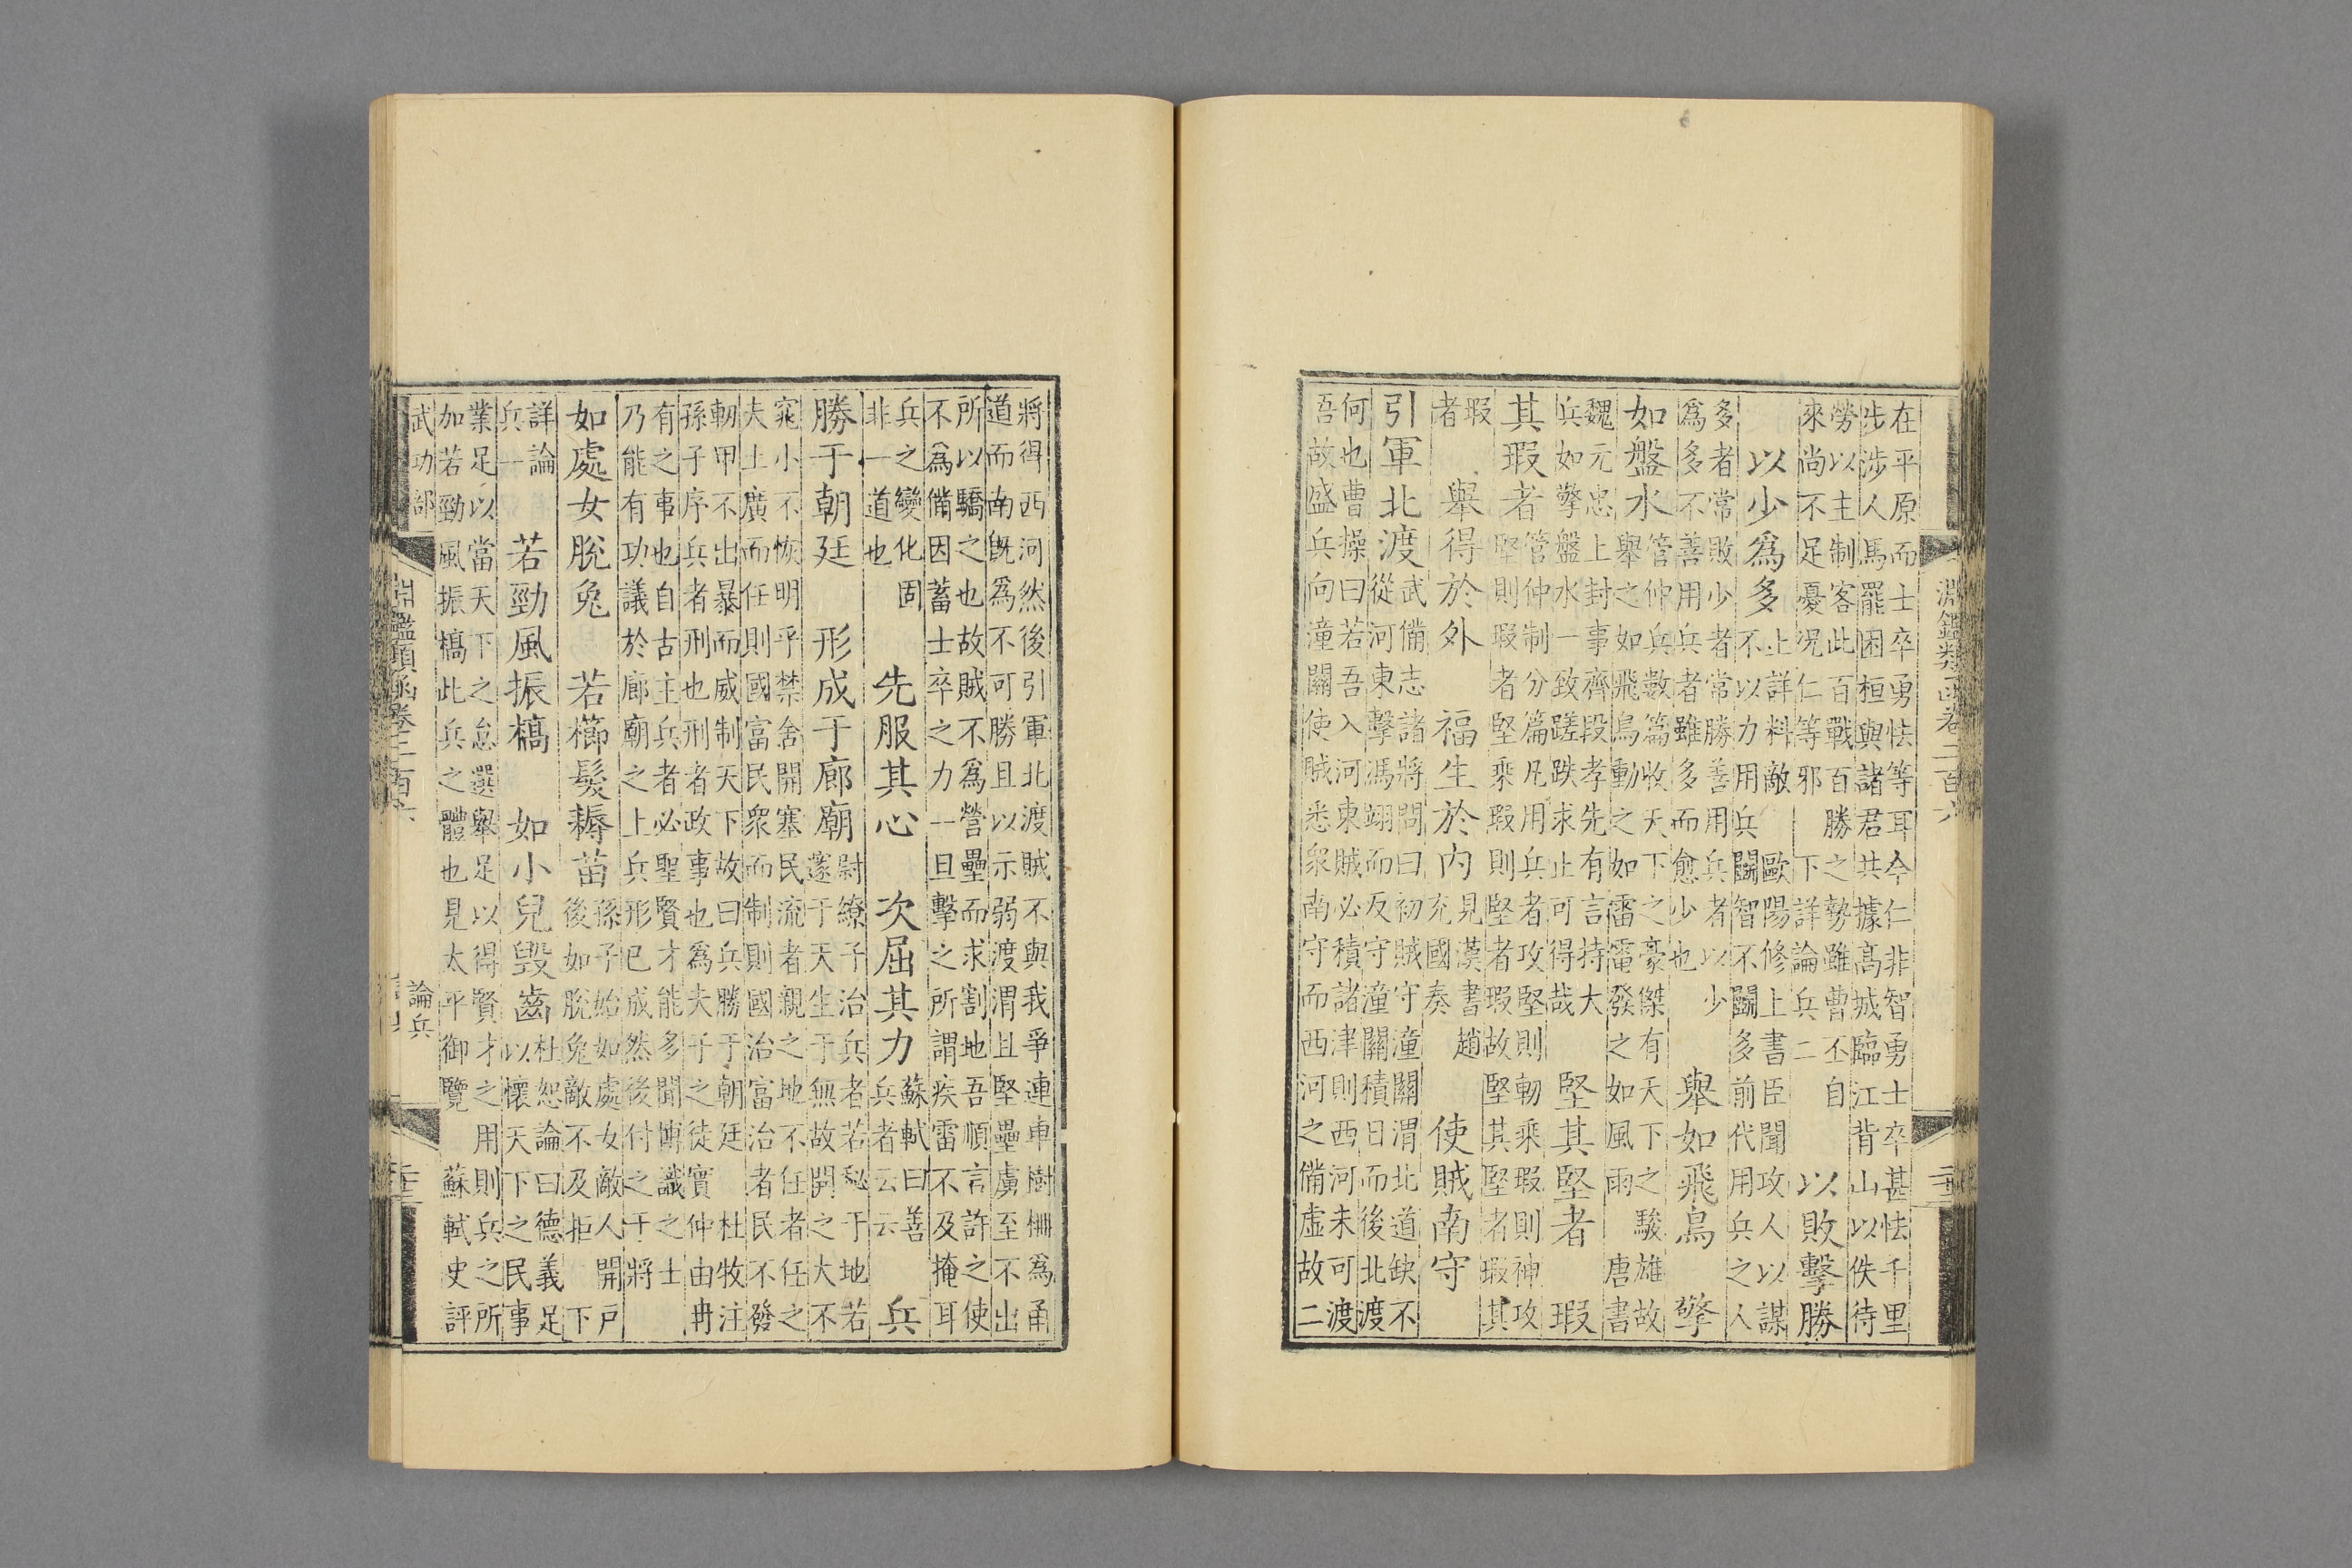 淵鑑類函卷二百六
在平原而士卒勇怯等耳今仁非智勇士卒甚怯千里
步涉人馬罷困桓與諸君共據高城臨江背山以佚待
勞以主制客此百戰百勝之勢雖曹丕自
來尚不足憂況仁等邪 下詳論兵二
以敗擊勝
以少爲多
上詳料敵 歐陽修上書臣聞攻人以謀
不以力用兵鬭智不鬭多前代用兵之人
多者常敗少者常勝善用兵者以少
爲多不善用兵者雖多而愈少也
舉如飛鳥 擎
如盤水
管仲兵數篇收天下之豪傑有天下之駿雄故
舉之如飛鳥動之如雷電發之如風雨 唐書
魏元忠上封事齊段孝先有言持大
兵如擎盤水一致蹉跌求止可得哉
堅其堅者 瑕
其瑕者
管仲制分篇凡用兵者攻堅則軔乘瑕則神攻
堅則瑕者堅乘瑕則堅者瑕故堅其堅者瑕其
瑕
者
舉得於外 福生於內
見漢書趙
充國奏
使賊南守
引軍北渡
武備志諸將問曰初賊守潼關渭北道缺不
從河東擊馮翊而反守潼關積日而後北渡
何也曹操曰若吾入河東賊必積諸津則西河未可渡
吾故盛兵向潼關使賊悉衆南守而西河之備虛故二
將得西河然後引軍北渡賊不與我爭連車樹柵爲甬
道而南既爲不可勝且以示弱渡渭且堅壘虜至不出
所以驕之也故賊不爲營壘而求割地吾順言許之使
不爲備因蓄士卒之力一旦擊之所謂疾雷不及掩耳
兵之變化固
非一道也
先服其心 次屈其力
蘇軾曰善
兵者云云
兵
勝于朝廷 形成于廊廟
尉繚子治兵者若秘于地若
邃于天生于無故開之大不
窕小不恢明乎禁舍開塞民流者親之地不任者任之
夫土廣而任則國富民衆而制則國治富治者民不發
軔甲不出暴而威制天下故曰兵勝于朝廷 杜牧注
孫子序兵者刑也刑者政事也爲夫子之徒實仲由冉
有之事也自古主兵者必聖賢才能多聞博識之士
乃能有功議於廊廟之上兵形已成然後付之于將
如處女脫兔 若櫛髮耨苗
孫子始如處女敵人開戶
後如脫兔敵不及拒 下
詳論
兵一
若勁風振槁 如小兒毀齒
杜恕論曰德義足
以懷天下之民事
業足以當天下之怠選舉足以得賢才之用則兵之所
加若勁風振槁此兵之體也見太平御覽 蘇軾史評
武功部
淵鑑類函卷二百六
論兵